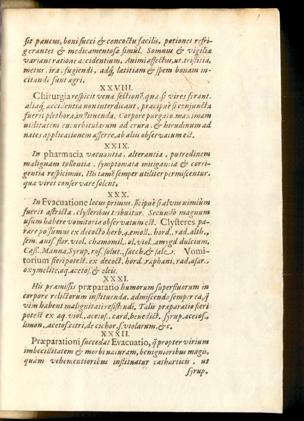 sit paucus, boni succi & concoctu facilis, potiones refri-
gerantes & medicamentosa simul. Somnus & vigiliæ
variant ratione accidentium. Animi affectus, ut tristitia,
metus, ira, fugiendi, ad lætitiam & spem bonam in-
citandi sunt ægri.
XXVIII.
Chirurgia respicit venæ sectionem, quæ si vires ferant,
aliaq; accidentia non interdicant, præcipuè si conjuncta
fuerit plethora, instituenda. Corpore purgato maximam
utilitatem cucurbitularum ad crura, & hirudinum ad
nates applicationem afferre, ab aliis observatum est.
XXIX.
In pharmacia vacuantia, alterantia, putredinem
malignam tollentia, symptomata mitigantia & corri-
gentia respicimus. His tamen semper utiliter permiscentur,
quæ vires conservare solent.
XXX.
In Evacuatione locus primus, si
fuerit adstricta, clysteribus tribuitur. Secundò magnum
usum habere vomitoria observatum est. Clysteres pa-
rare possumus ex decocto herb. alth.
sem. anis. flor. viol. chamomil. ol. viol. amygd. dulcium,
Cass. Manna, Syrup. ros. solut. sacch. & sale. Vomi-
torium fieri potest ex decoct. hord. raphani, rad. asar.
oxymelite, aq. acetos. & oleis.
XXXI.
His præmissis præparatio humorum superfluorum in
corpore relictorum instituenda, admiscendo semper ea, q;
vim habent malignitati resistendi. Talis præparatio fieri
potest ex aq. viol. acetos. card. benedict. syrup. acetos.
limon. acetos. citri, de cichor. s. violarum, &c.
XXXII.
Præparationi succedat Evacuatio, q; propter virium
imbecillitatem & morbi naturam, benignioribus magis,
quàm vehementioribus instituatur catharticis, ut
syrup.